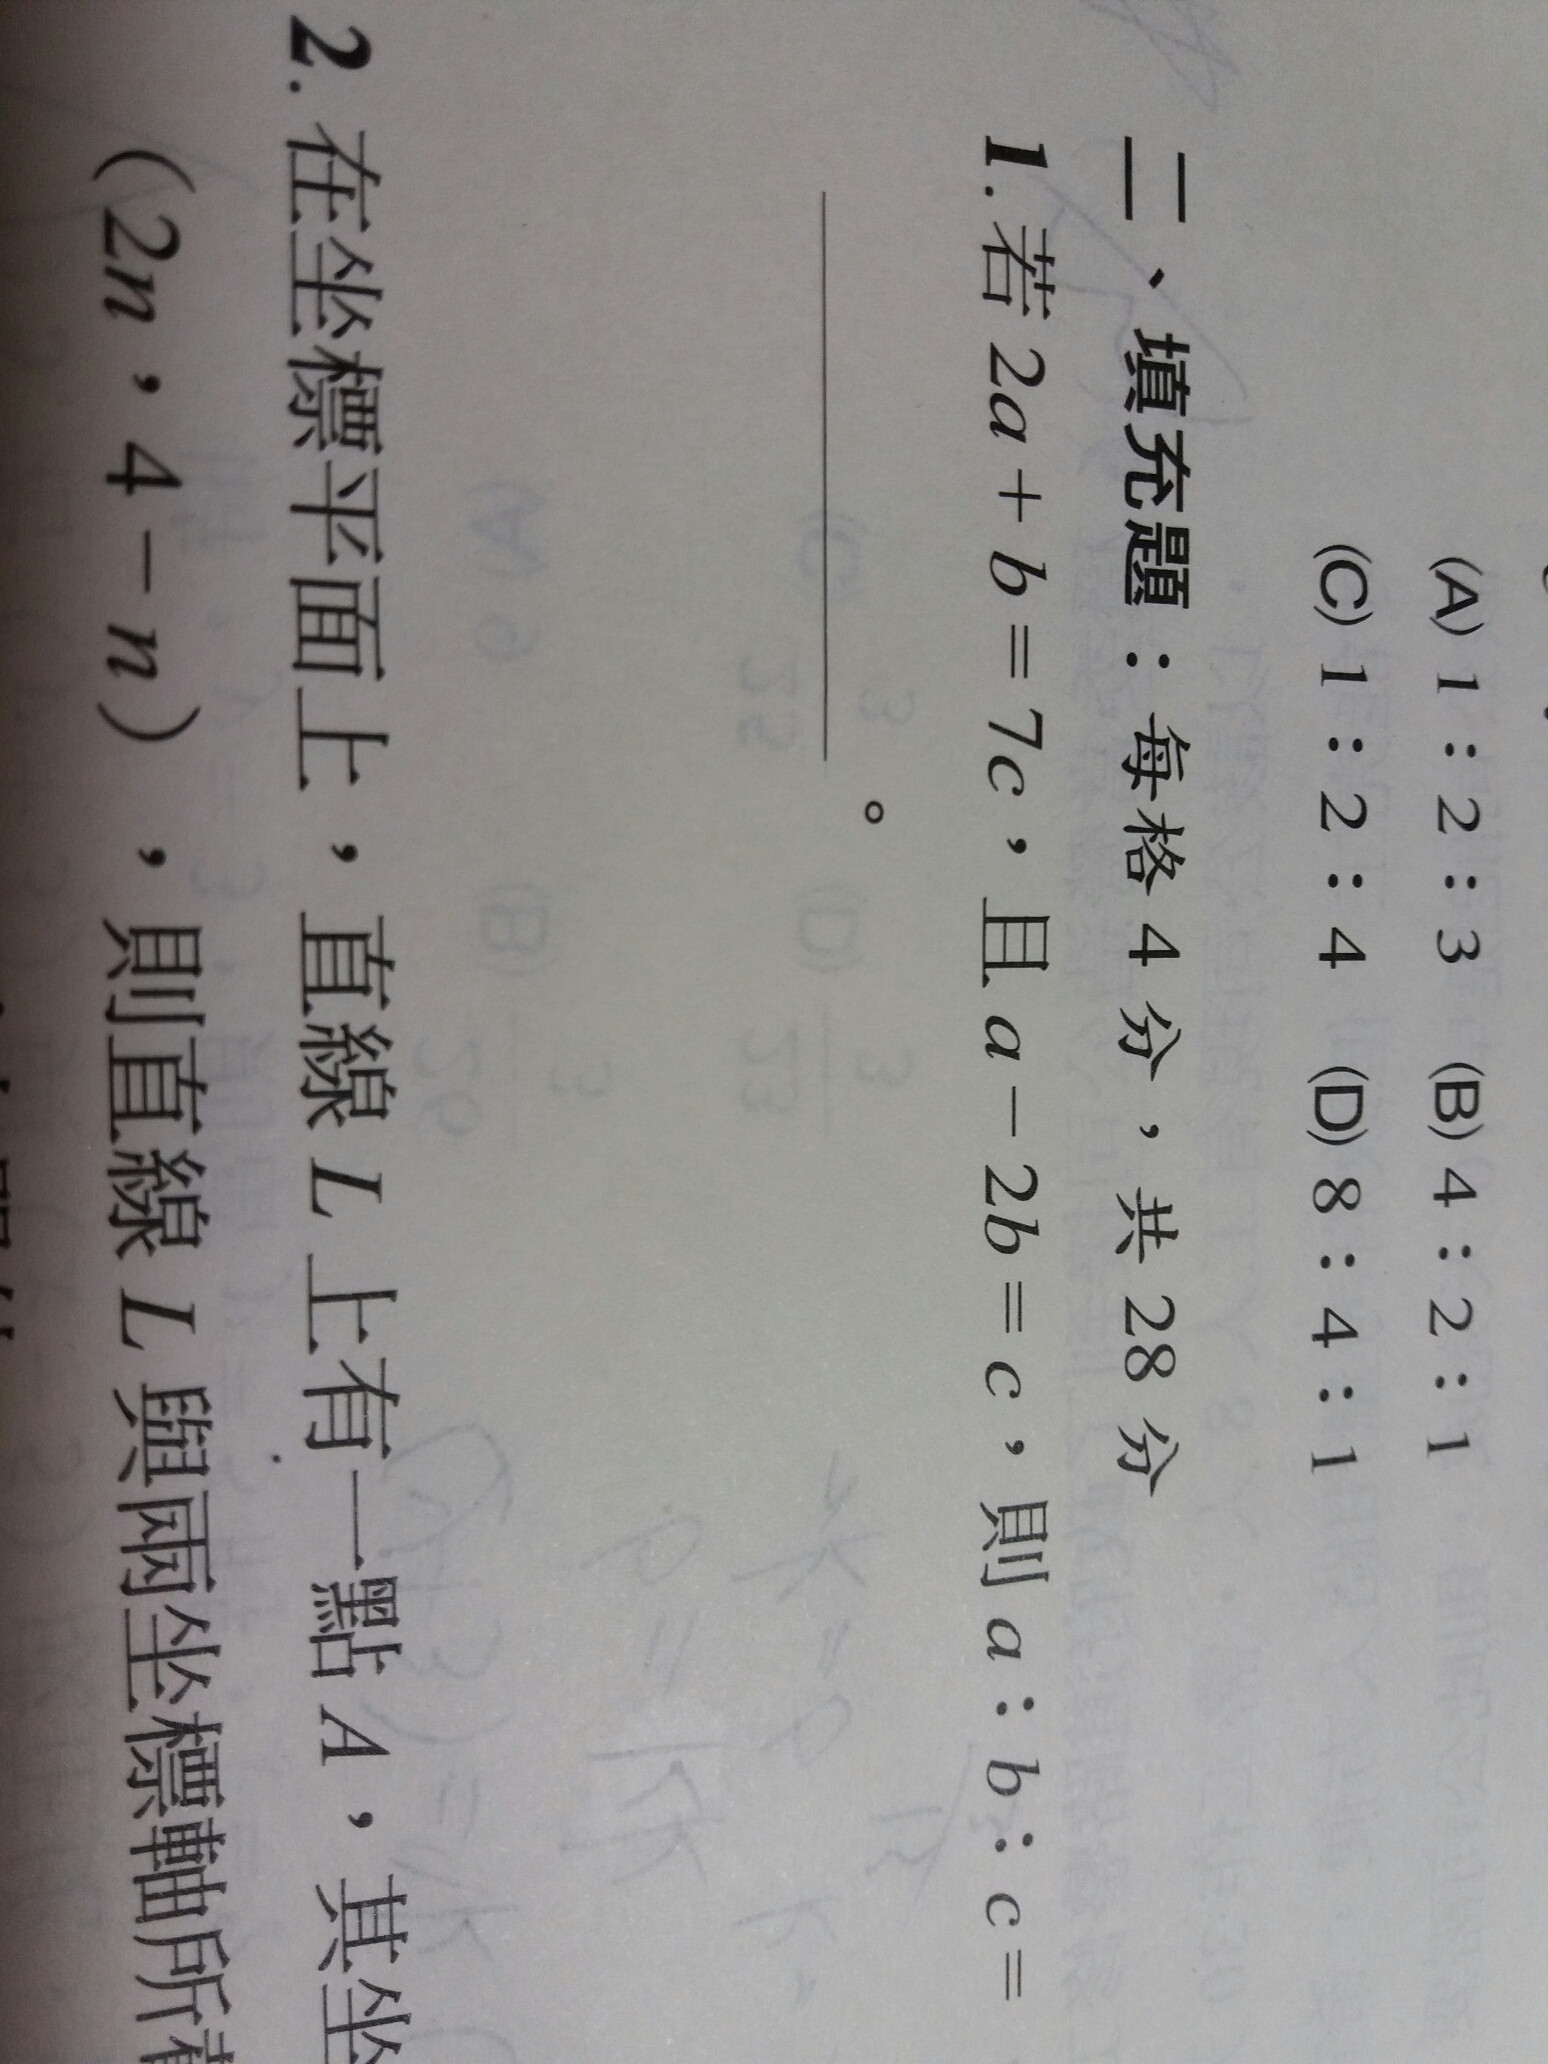 (A) 1：2：3 (B) 4：2：1
(C) 1：2：4 (D) 8：4：1
二、填充題：每格 4 分，共 28 分
1. 若 2a＋b＝7c，且 a－2b＝c，則 a：b：c＝
。
2. 在坐標平面上，直線 L 上有一點 A，其坐
(2n，4－n)，則直線 L 與兩坐標軸所